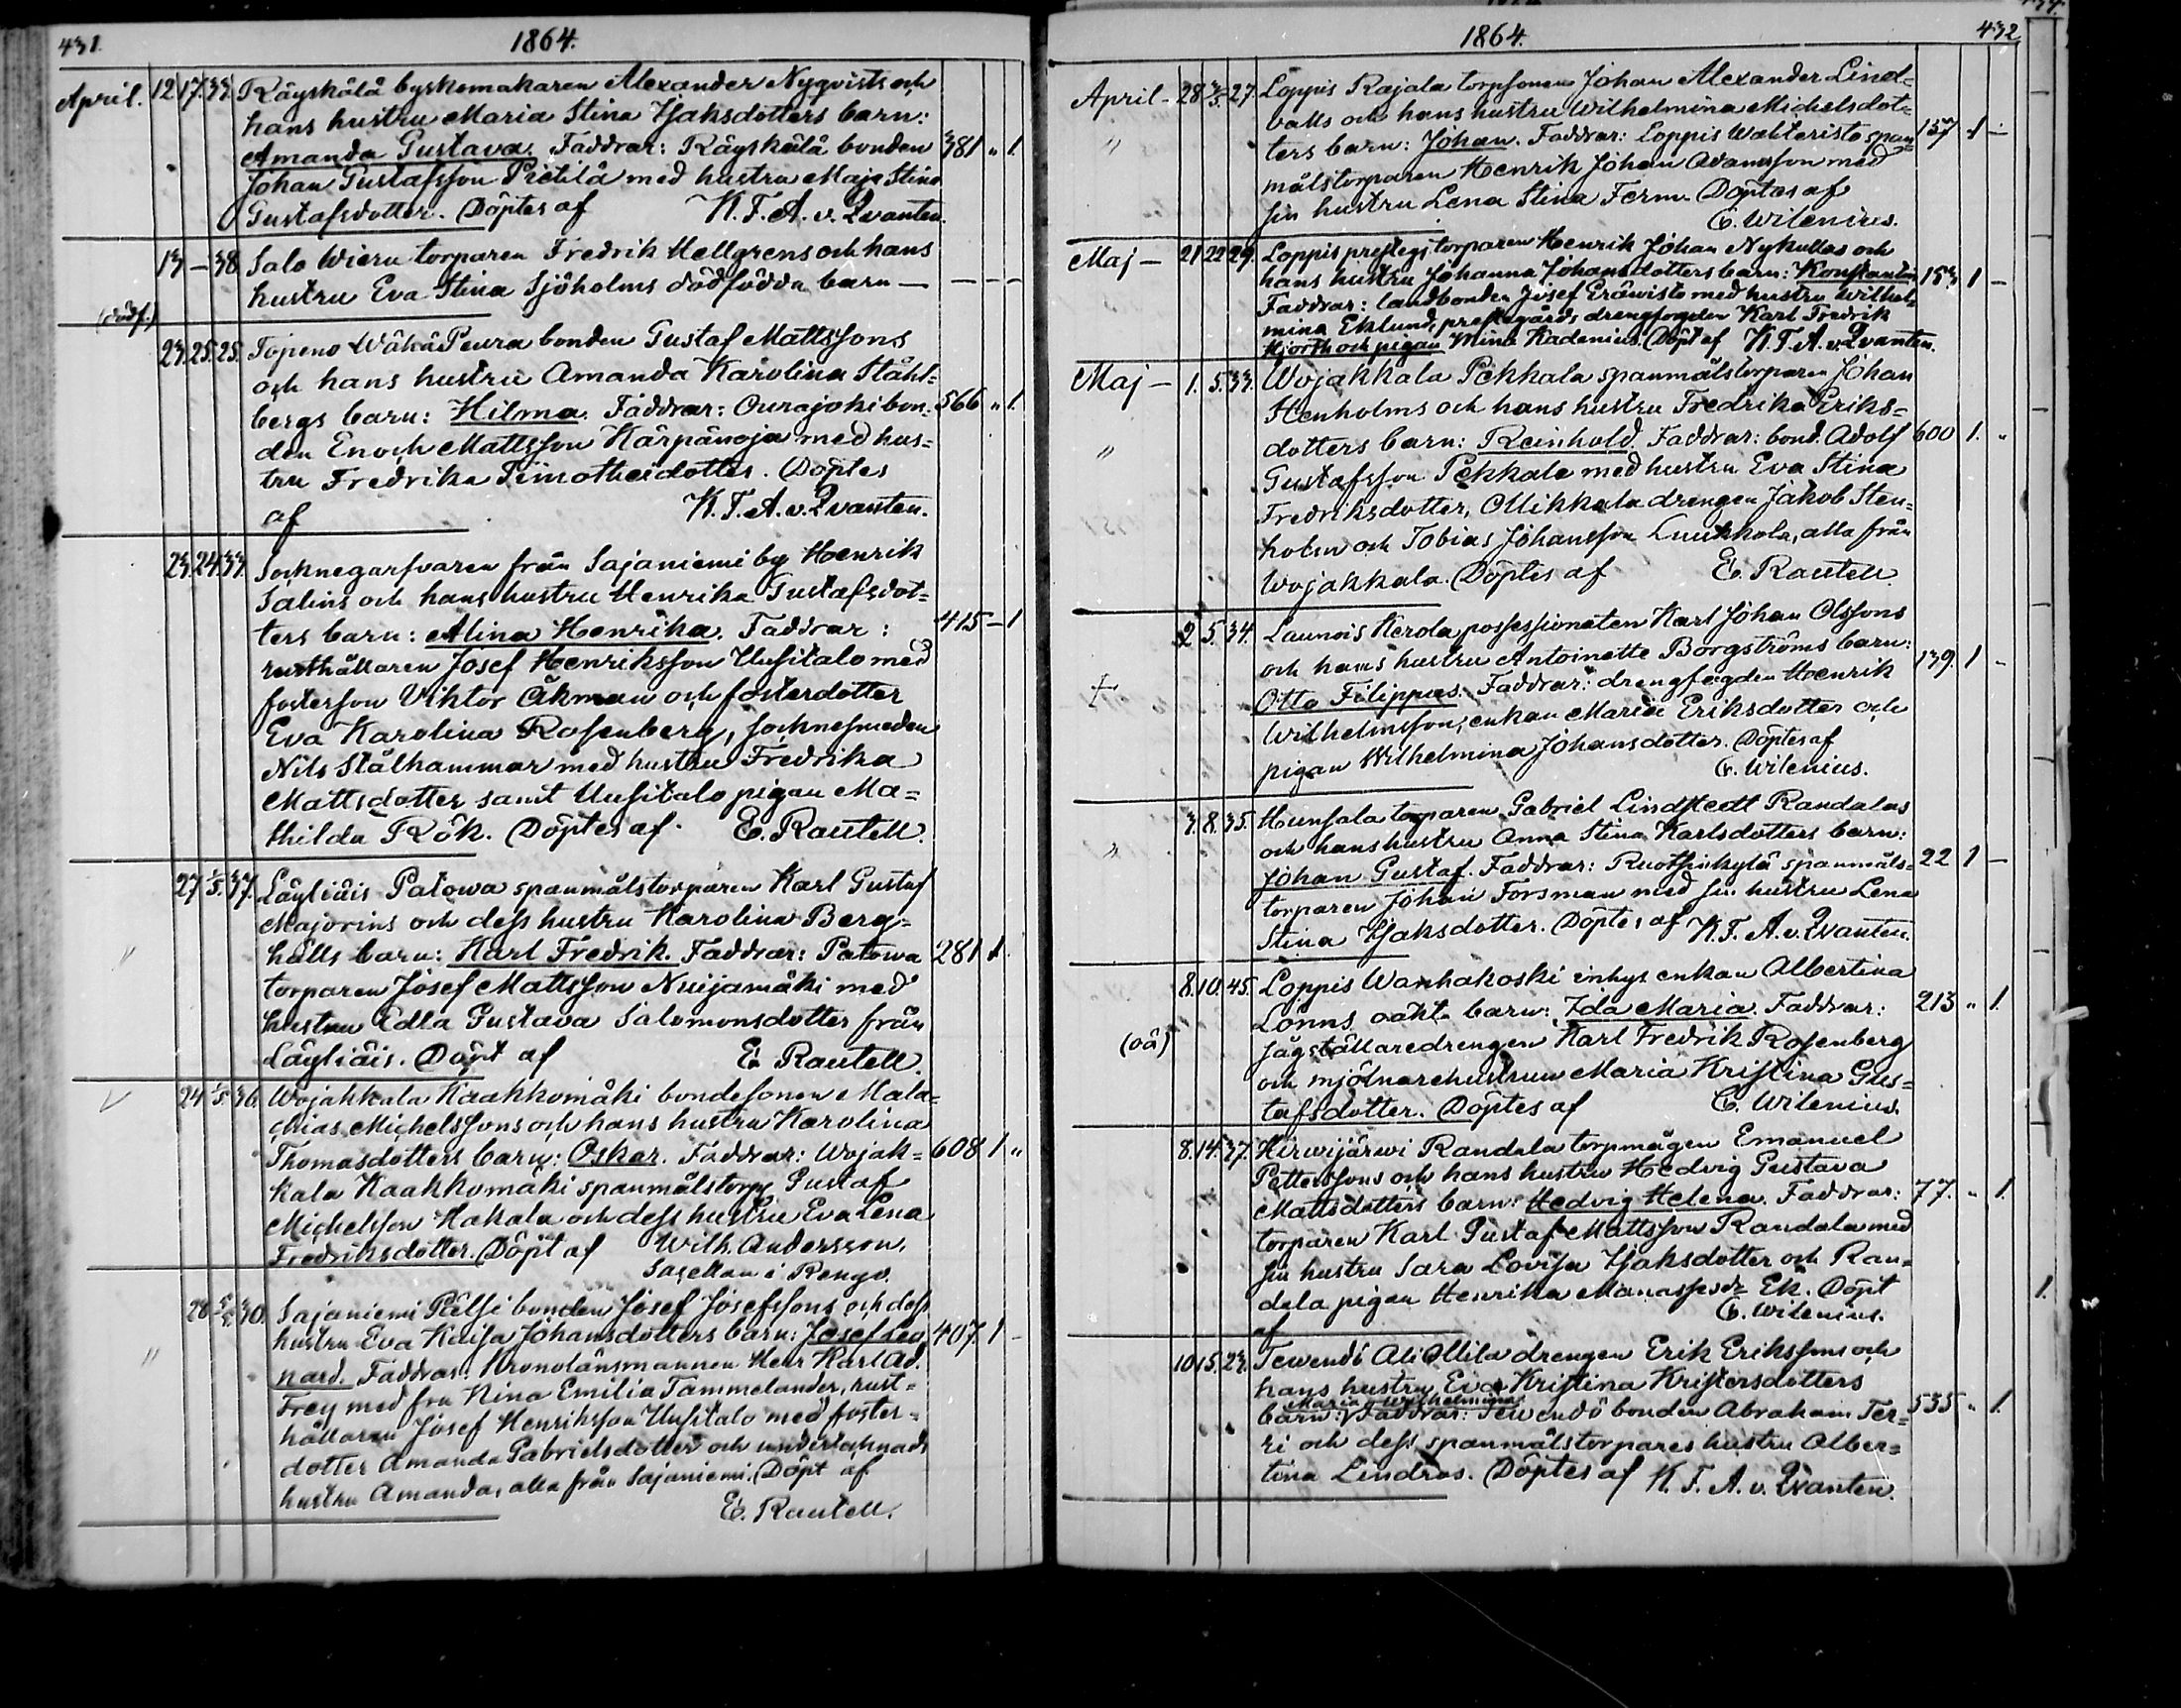 431. 1864.
April. 12 17. 33. Räyskälä byskomakaren Alexander Nyqvists och
hans hustru Maria Stina Isaksdotters barn:
Amanda Gustava. Faddrar: Räyskälä bonden 381 " 1.
Johan Gustafsson Pietilä med hustru Maja Stina
Gustafsdotter. Döptes af K. F. A. v. Qvanten.
13 — 38. Salo Wieru torparen Fredrik Hellgrens och hans
hustru Eva Stina Sjöholms dödfödda barn — — – –
(dödf.)
23. 25. 25. Topeno Wähä Peura bonden Gustaf Mattssons
och hans hustru Amanda Karolina Ståhl=
bergs barn: Hilma. Faddrar: Ourajoki bon= 566 " 1.
den Enoch Mattsson Kärpänoja med hus=
tru Fredrika Timotheidotter. Döptes
af K. F. A. v. Qvanten.
23. 24. 33. Socknegarfvaren från Sajaniemi by Henrik
Salins och hans hustru Henrika Gustafsdot=
ters barn: Alina Henrika. Faddrar: 415 – 1
rusthållaren Josef Henriksson Uusitalo med
fosterson Viktor Åkman och fosterdotter
Eva Karolina Rosenberg, socknesmeden
Nils Stålhammar med hustru Fredrika
Mattsdotter samt Uusitalo pigan Ma=
thilda Rök. Döptes af E. Rautell.
27 1/5. 37. Läyliäis Patowa spanmålstorparen Karl Gustaf
Majorins och dess hustru Karolina Berg=
hälls barn: Karl Fredrik. Faddrar: Patowa 281 1.
" torparen Josef Mattsson Nuijamäki med
hustru Edla Gustava Salomonsdotter från
Läyliäis. Döpt af E. Rautell.
V 24 1/5. 36. Wojakkala Kaakkomäki bondesonen Mala=
chias Michelssons och hans hustru Karolina
Thomasdotters barn: Oskar. Faddrar: Wojak= 608 1 "
kala Kaakkomäki spanmålstorp. Gustaf
Michelsson Hakala och dess hustru Eva Lena
Fredriksdotter. Döpt af Wilh. Andersson,
Sacellan i Rengo.
28 5/5. 30. Sajaniemi Pälsi bonden Josef Josefssons och dess
hustru Eva Kaisa Johansdotters barn: Josef Leo= 407. 1 –
" nard. Faddrar: Kronolänsmannen Herr Karl Ad.
Frey med fru Nina Emilia Tammelander, rust=
hållaren Josef Henriksson Uusitalo med foster=
dotter Amanda Gabrielsdotter och undertecknads
hustru Amanda, alla från Sajaniemi. Döpt af
E. Rautell.
1864. 432
April – 28 3/5. 27. Loppis Rajala torpsonen Johan Alexander Lind=
valls och hans hustru Wilhelmina Michelsdot=
" ters barn: Johan. Faddrar: Loppis Wahteristo span= 157 1 –
målstorparen Henrik Johan Adamsson med
sin hustru Lena Stina Ferm. Döptes af
C. Wilenius.
Maj – 21 22 29. Loppis prestegs torparen Henrik Johan Nykullas och
hans hustru Johanna Johansdotters barn: Konstantin 153 1 –
Faddrar: landbonden Josef Eräwisto med hustru Wilhel=
mina Eklund, prestgårds drengfogden Karl Fredrik
Hjorth och pigan Mina Kadenius. Döpt af K. F. A. v. Qvanten.
Maj – 1. 5. 33. Wojakkala Pekkala spanmålstorparen Johan
Stenholms och hans hustru Fredrika Eriks=
" dotters barn: Reinhold. Faddrar: bond. Adolf 600 1. "
Gustafsson Pekkala med hustru Eva Stina
Fredriksdotter, Ollikkala drengen Jakob Sten=
holm och Tobias Johansson Luukkola, alla från
Wojakkala. Döptes af E. Rautell
2 5. 34. Launois Kerola possessionaten Karl Johan Olssons
och hans hustru Antoinette Borgströms barn: 139. 1 –
+ Otto Filippus. Faddrar: drengfogden Henrik
Wilhelmsson, enkan Maria Eriksdotter och
pigan Wilhelmina Johansdotter. Döptes af
C. Wilenius.
3. 8. 35. Hunsala torparen Gabriel Lindstedt Randalas
" och hans hustru Anna Stina Karlsdotters barn:
Johan Gustaf. Faddrar: Ruotsinkylä spanmåls= 22 1 –
torparen Johan Forsman med sin hustru Lena
Stina Isaksdotter. Döptes af K. F. A. v. Qvanten.
8. 10. 45. Loppis Wanhakoski inhys enkan Albertina
Lönns oäkta barn: Ida Maria. Faddrar: 213 " 1.
(oä) sågställaredrengen Karl Fredrik Rosenberg
och mjölnarehustrun Maria Kristina Gus=
tafsdotter. Döptes af C. Wilenius.
8. 14. 37. Hirwijärwi Randala torpmågen Emanuel
Petterssons och hans hustru Hedvig Gustava
Mattsdotters barn: Hedvig Helena. Faddrar: 77. " 1.
torparen Karl Gustaf Mattsson Randala med
sin hustru Sara Lovisa Isaksdotter och Ran=
dala pigan Henrika Manassedr Ek. Döpt
af C. Wilenius.
1.
10 15. 23. Tewendö Ali Ollila drengen Erik Erikssons och
hans hustru Eva Kristina Kristersdotters
Maria Wilhelmina
barn: V Faddrar: Tewendö bonden Abraham Ter= 535 " 1.
ri och dess spanmålstorpares hustru Alber=
tina Lindros. Döptes af K. F. A. v. Qvanten.